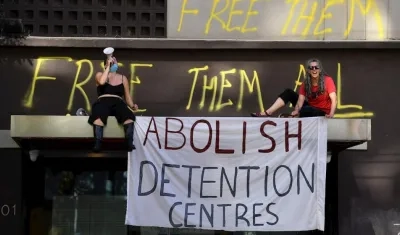 FREE THEM
FREE THEM ALL
ABOLISH
DETENTION
CENTRES